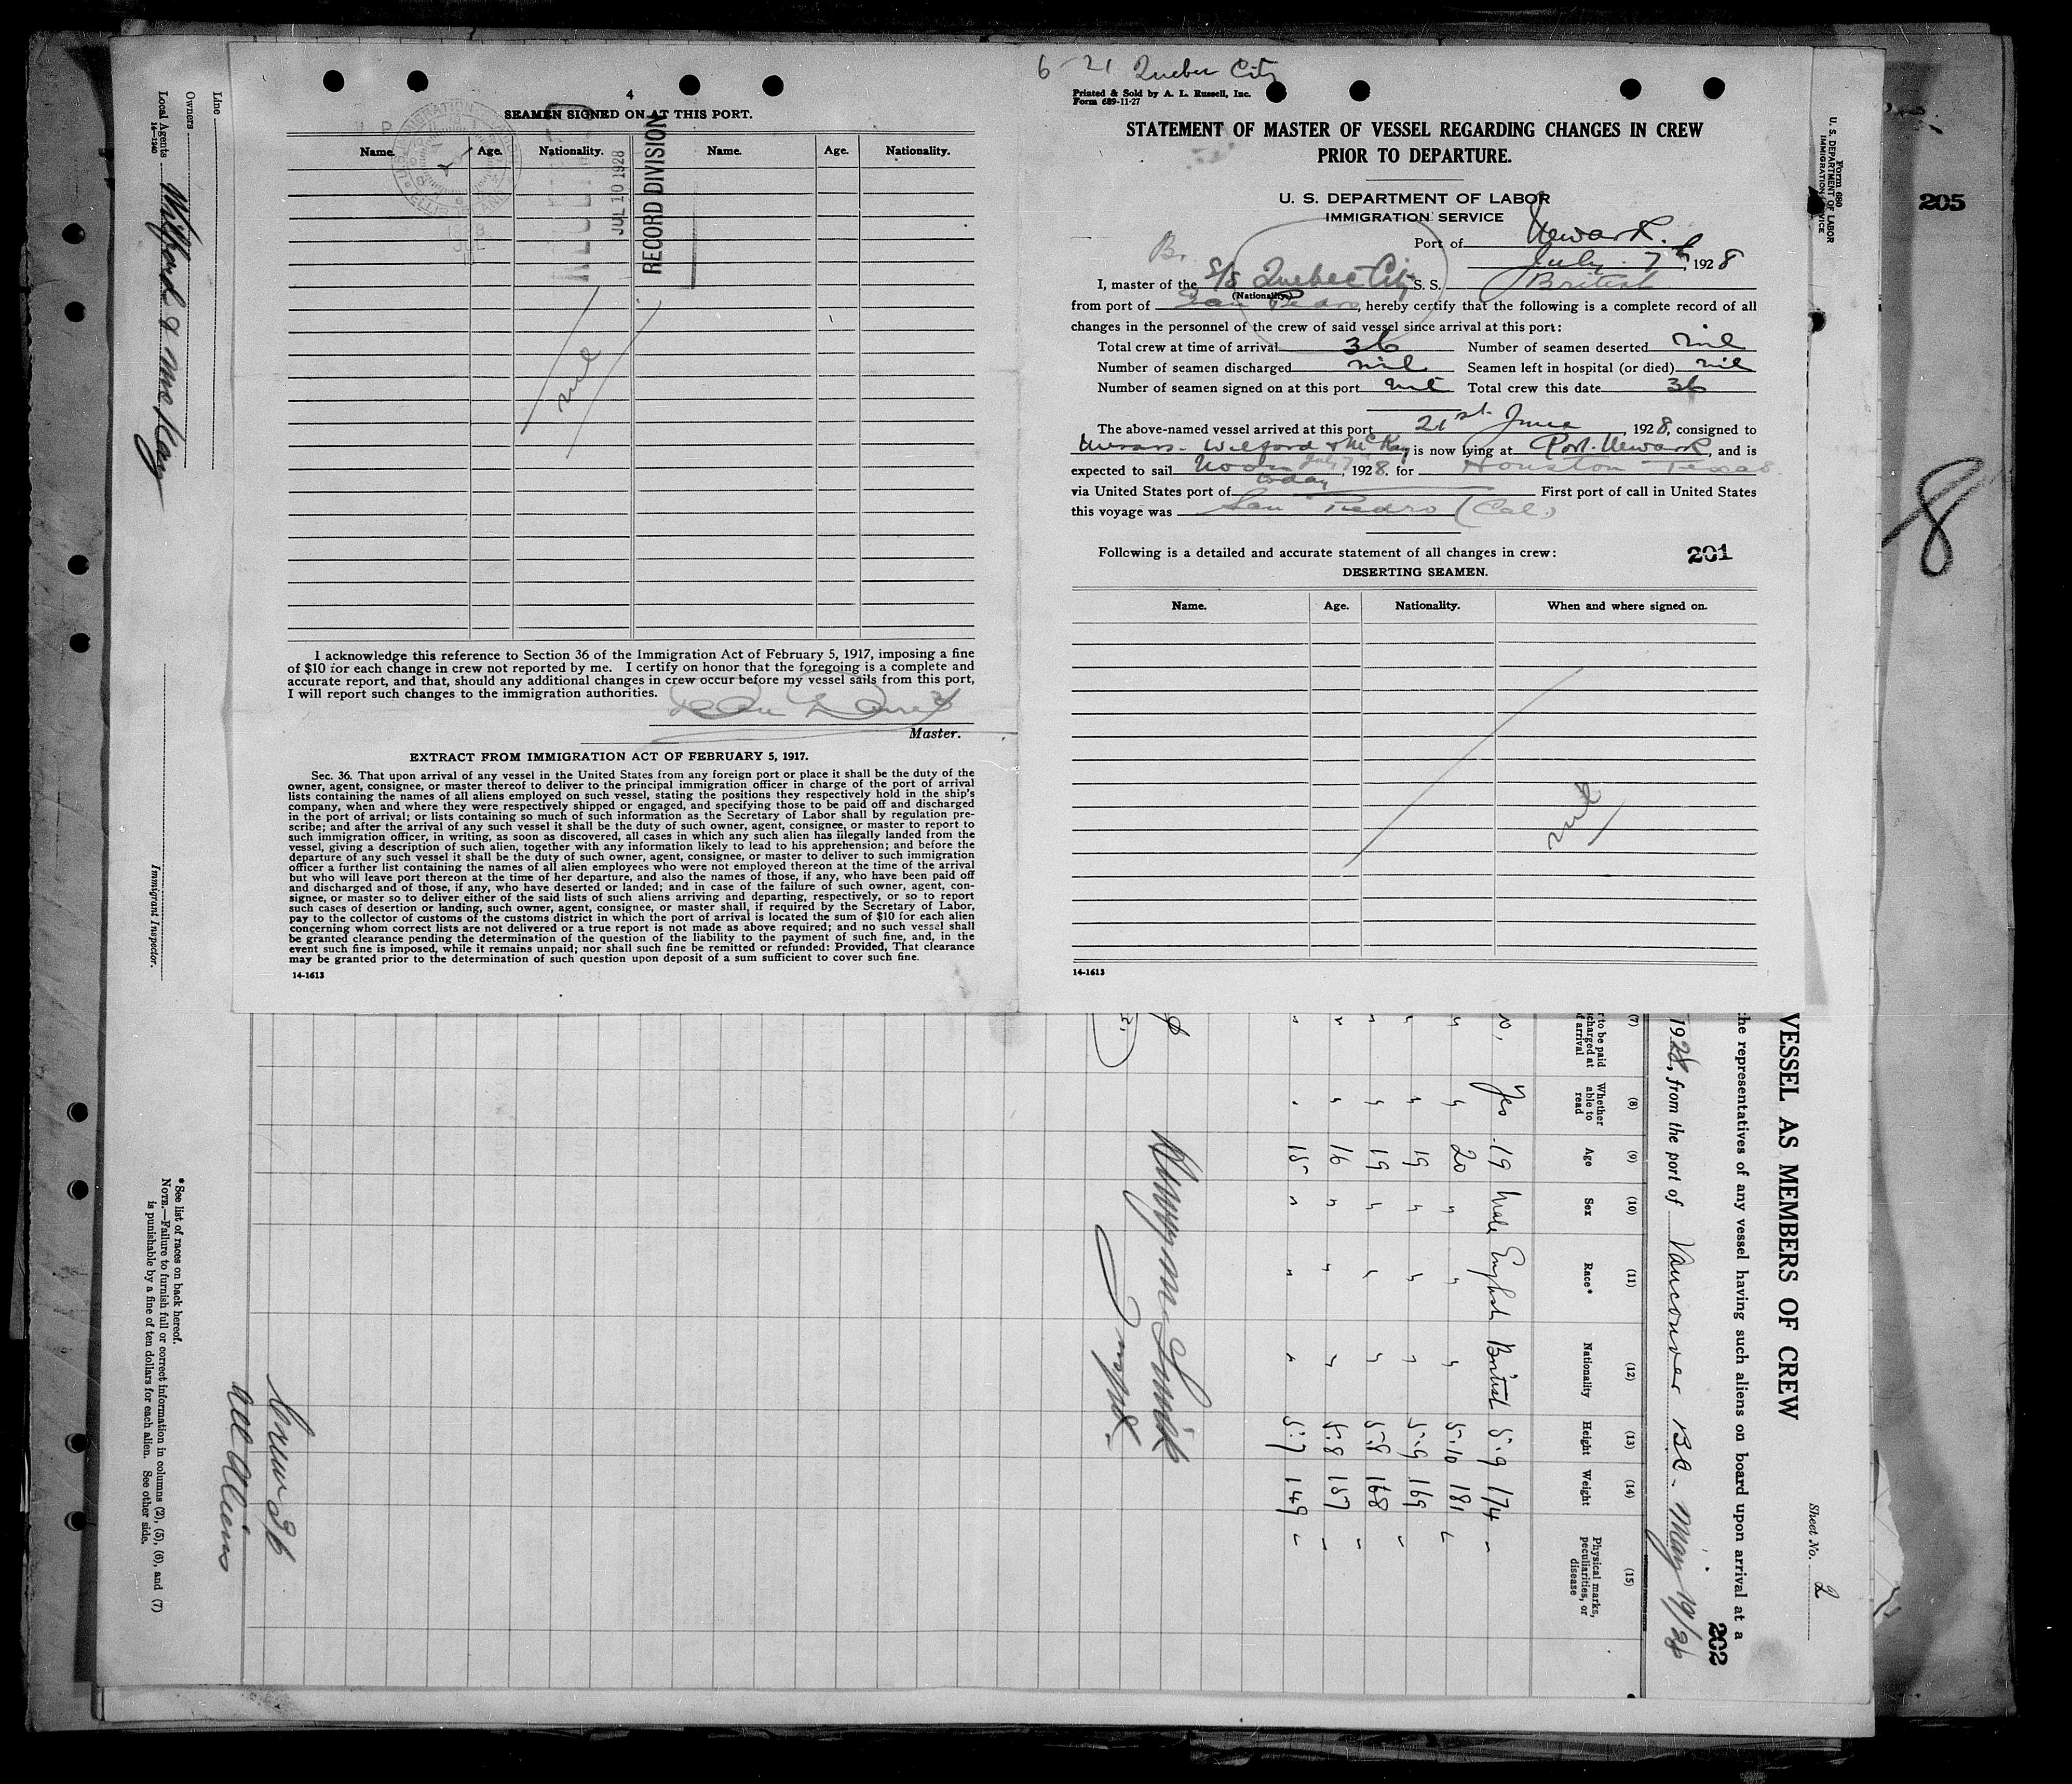 6-21 Quebec City
Printed & Sold by A. L. Russell, Inc.
Form 689-11-27
STATEMENT OF MASTER OF VESSEL REGARDING CHANGES IN CREW
PRIOR TO DEPARTURE.
U. S. DEPARTMENT OF LABOR
IMMIGRATION SERVICE
Port of Newark.
July 7th, 1928
B.
I, master of the S/S Quebec City S. S. British
(Nationality)
from port of San Pedro, hereby certify that the following is a complete record of all
changes in the personnel of the crew of said vessel since arrival at this port:
Total crew at time of arrival 36 Number of seamen deserted nil
Number of seamen discharged nil Seamen left in hospital (or died) nil
Number of seamen signed on at this port nil Total crew this date 36
The above-named vessel arrived at this port 21st June, 1928, consigned to
Messrs. Wilford & McKay is now lying at Port Newark, and is
expected to sail Noon July 7th, 1928. for Houston Texas
today
via United States port of First port of call in United States
this voyage was San Pedro (Cal.)
Following is a detailed and accurate statement of all changes in crew: 201
DESERTING SEAMEN.
Name. Age. Nationality. When and where signed on.
nil
14-1613
4
SEAMEN SIGNED ON AT THIS PORT.
Name. Age. Nationality. Name. Age. Nationality.
JUL 10 1928
RECORD DIVISION
nil
I acknowledge this reference to Section 36 of the Immigration Act of February 5, 1917, imposing a fine
of $10 for each change in crew not reported by me. I certify on honor that the foregoing is a complete and
accurate report, and that, should any additional changes in crew occur before my vessel sails from this port,
I will report such changes to the immigration authorities.
Master.
EXTRACT FROM IMMIGRATION ACT OF FEBRUARY 5, 1917.
Sec. 36. That upon arrival of any vessel in the United States from any foreign port or place it shall be the duty of the
owner, agent, consignee, or master thereof to deliver to the principal immigration officer in charge of the port of arrival
lists containing the names of all aliens employed on such vessel, stating the positions they respectively hold in the ship's
company, when and where they were respectively shipped or engaged, and specifying those to be paid off and discharged
in the port of arrival; or lists containing so much of such information as the Secretary of Labor shall by regulation pre-
scribe; and after the arrival of any such vessel it shall be the duty of such owner, agent, consignee, or master to report to
such immigration officer, in writing, as soon as discovered, all cases in which any such alien has illegally landed from the
vessel, giving a description of such alien, together with any information likely to lead to his apprehension; and before the
departure of any such vessel it shall be the duty of such owner, agent, consignee, or master to deliver to such immigration
officer a further list containing the names of all alien employees who were not employed thereon at the time of the arrival
but who will leave port thereon at the time of her departure, and also the names of those, if any, who have been paid off
and discharged and of those, if any, who have deserted or landed; and in case of the failure of such owner, agent, con-
signee, or master so to deliver either of the said lists of such aliens arriving and departing, respectively, or so to report
such cases of desertion or landing, such owner, agent, consignee, or master shall, if required by the Secretary of Labor,
pay to the collector of customs of the customs district in which the port of arrival is located the sum of $10 for each alien
concerning whom correct lists are not delivered or a true report is not made as above required; and no such vessel shall
be granted clearance pending the determination of the question of the liability to the payment of such fine, and, in the
event such fine is imposed, while it remains unpaid; nor shall such fine be remitted or refunded: Provided, That clearance
may be granted prior to the determination of such question upon deposit of a sum sufficient to cover such fine.
14-1613
Form 680
U. S. DEPARTMENT OF LABOR
IMMIGRATION SERVICE
205
8
Sheet No. 2
VESSEL AS MEMBERS OF CREW
202
the representatives of any vessel having such aliens on board upon arrival at a
1928, from the port of Vancouver B.C. May 19/28
(7) (8) (9) (10) (11) (12) (13) (14) (15)
to be paid
charged at
f arrival
Whether
able to
read
Age
Sex
Race*
Nationality
Height
Weight
Physical marks,
peculiarities, or
disease
Yes 19 Male English British 5.9 174 -
" " 20 " " " 5.10 181
" " 19 " " " 5.9 169 -
" " 19 " " " 5.8 168 -
" " 16 " " " 5.8 157 -
" " 15 " " " 5.7 149 -
Crew 36
all aliens
*See list of races on back hereof.
NOTE.—Failure to furnish full or correct information in columns (2), (5), (6), and (7)
is punishable by a fine of ten dollars for each alien. See other side.
Line
Owners
Local Agents Wilford & McKay
14-1240
Immigrant Inspector.